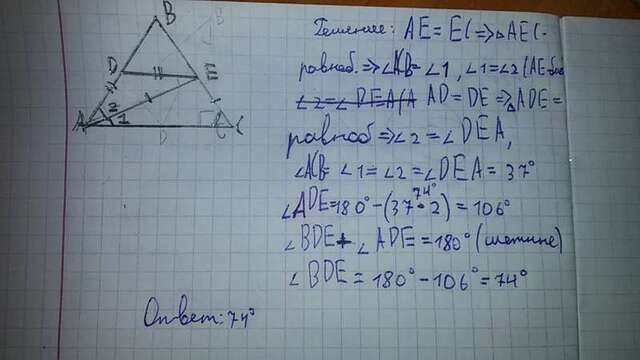 B
D
E
A
2
1
C
Решение: AE = EC ⇒ △AEC -
равноб. ⇒ ∠ACB = ∠1, ∠1 = ∠2 (AE-бис
∠2 = ∠DEA (A AD = DE ⇒ △ADE =
равноб ⇒ ∠2 = ∠DEA,
∠ACB = ∠1 = ∠2 = ∠DEA = 37°
74°
∠ADE = 180° - (37° · 2) = 106°
∠BDE + ∠ADE = 180° (
∠BDE = 180° - 106° = 74°
Ответ: 74°